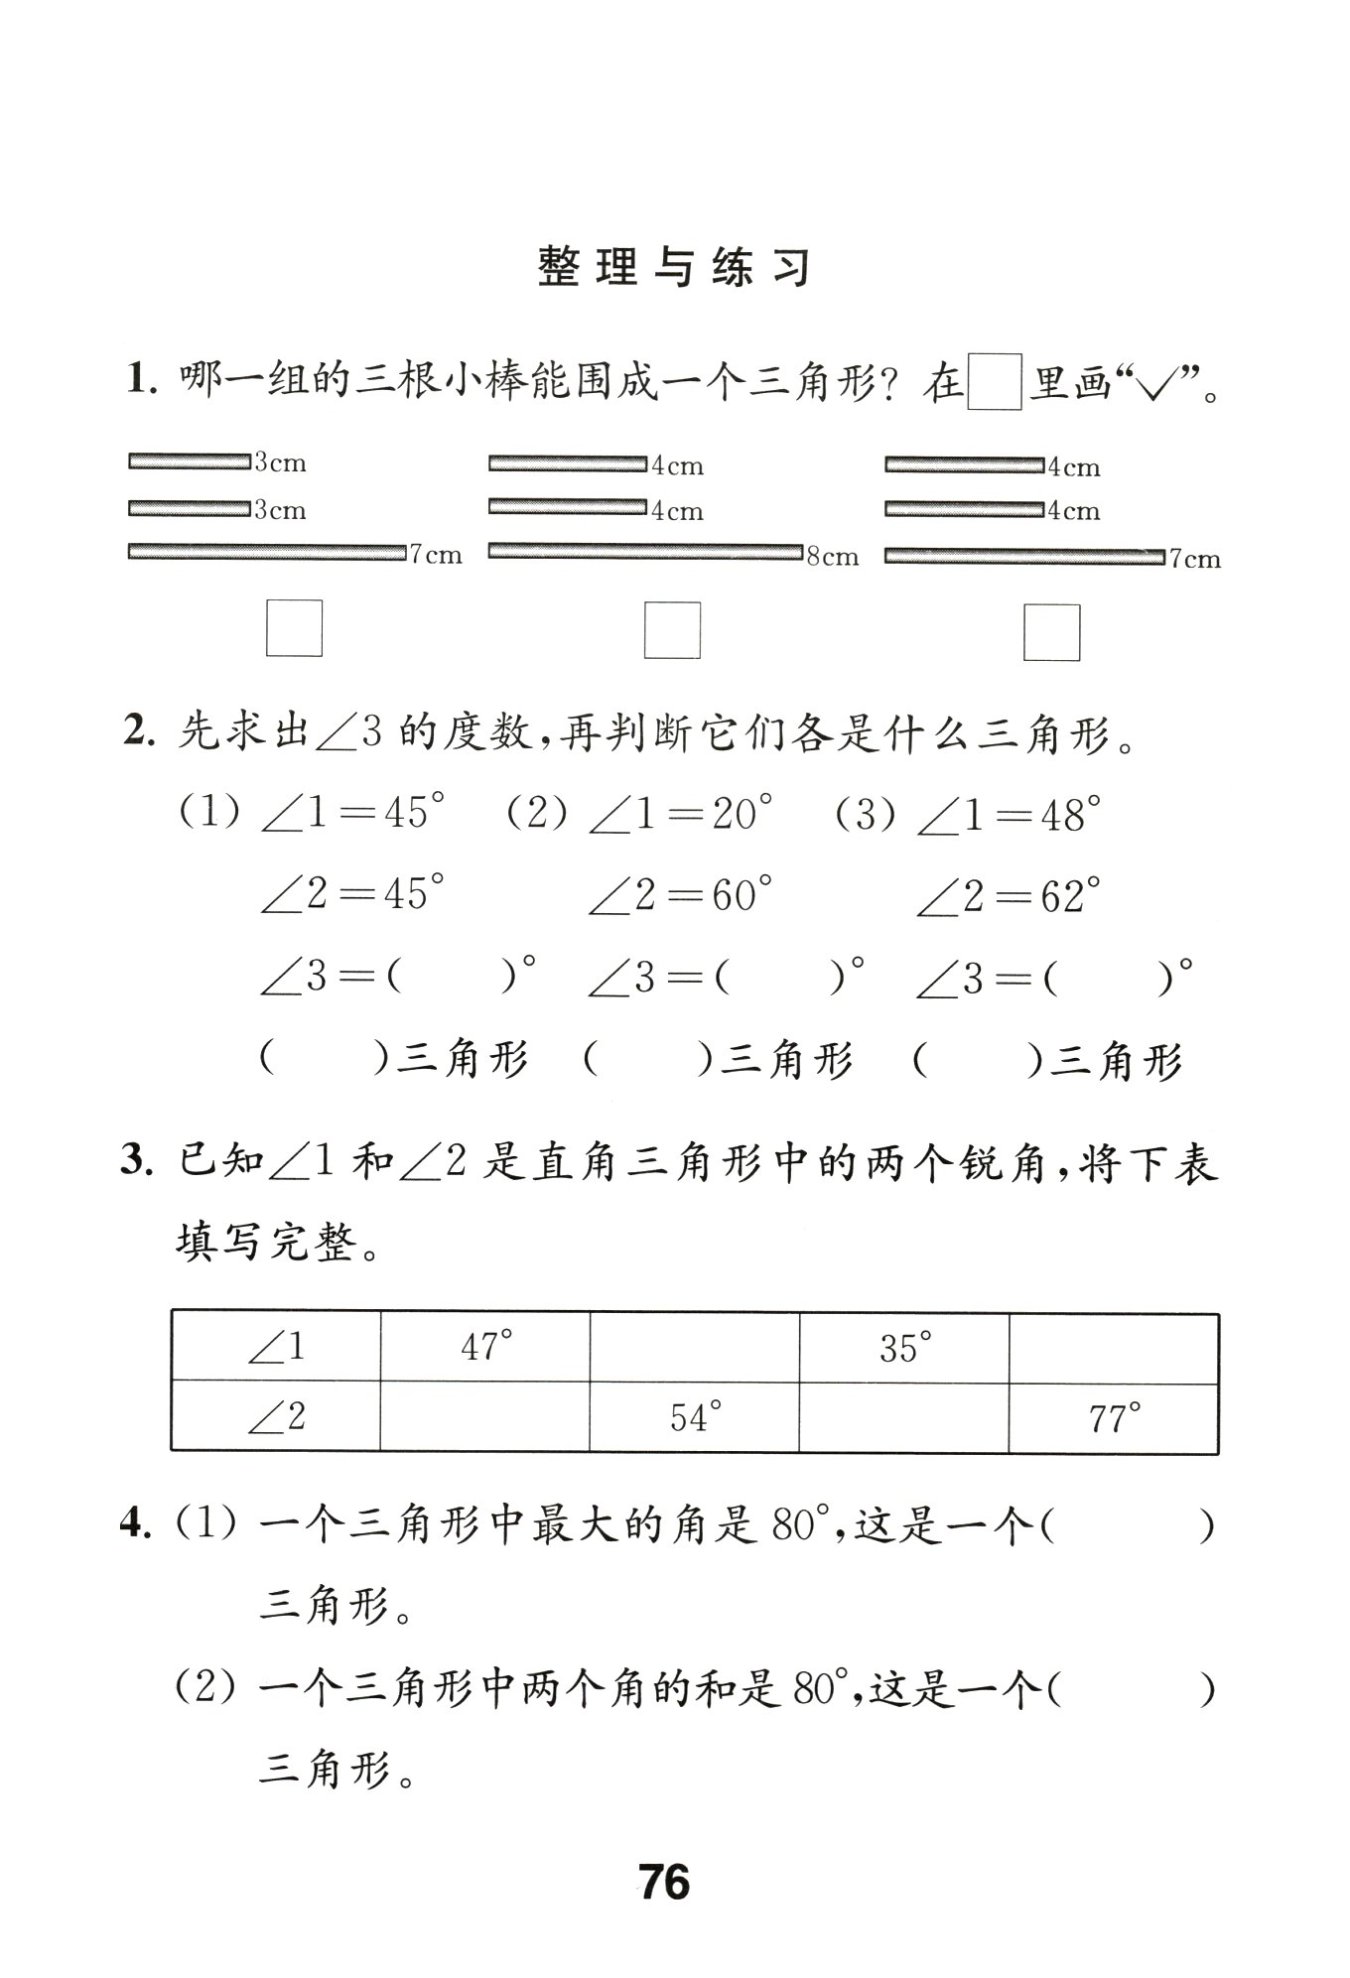 整理与练习
1. 哪一组的三根小棒能围成一个三角形？在□里画“✓”。
3cm 4cm 4cm
3cm 4cm 4cm
7cm 8cm 7cm
2. 先求出∠3的度数，再判断它们各是什么三角形。
（1）∠1＝45° （2）∠1＝20° （3）∠1＝48°
∠2＝45° ∠2＝60° ∠2＝62°
∠3＝(　　)° ∠3＝(　　)° ∠3＝(　　)°
(　　)三角形 (　　)三角形 (　　)三角形
3. 已知∠1和∠2是直角三角形中的两个锐角，将下表
填写完整。
∠1 47° 35°
∠2 54° 77°
4.（1）一个三角形中最大的角是80°，这是一个(　　　)
三角形。
（2）一个三角形中两个角的和是80°，这是一个(　　　)
三角形。
76